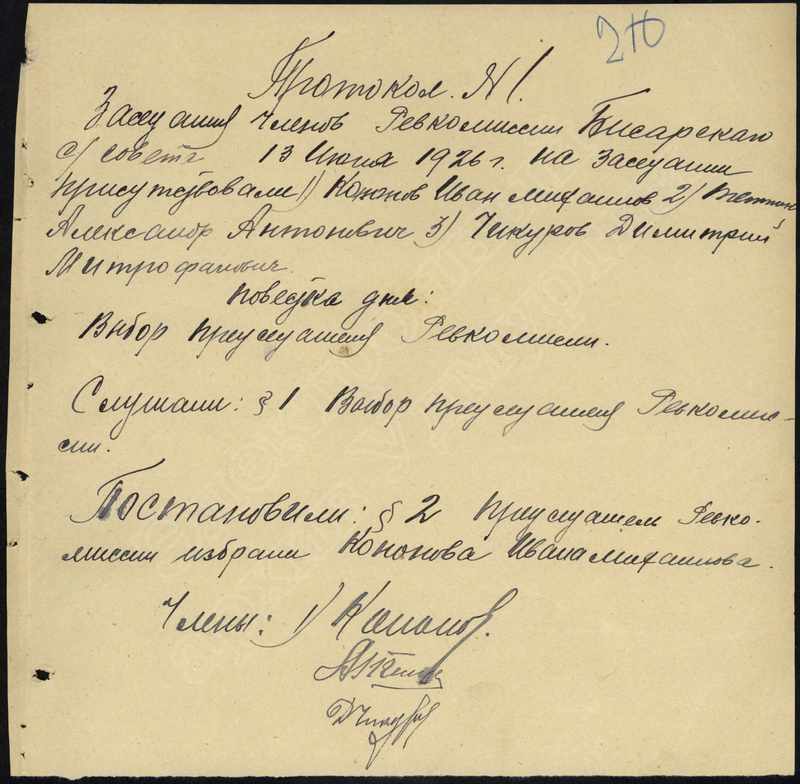 210
Протокол. № 1.
Заседания Членов Ревкомиссии Бисарскаго
с/совета 13 Июня 1926 г. на Заседании
присутствовали 1) Кононов Иван Михаилов 2)
Александр Антонович 3) Чикуров Димитрий
Митрофанович.
Повестка дня:
Выбор председателя Ревкомиссии.
Слушали: § 1 Выбор председателя Ревкомис-
сии.
Постановили: § 2 председателем Ревко-
миссии избрали Кононова Ивана Михаилова.
Члены: 1) Кононов.